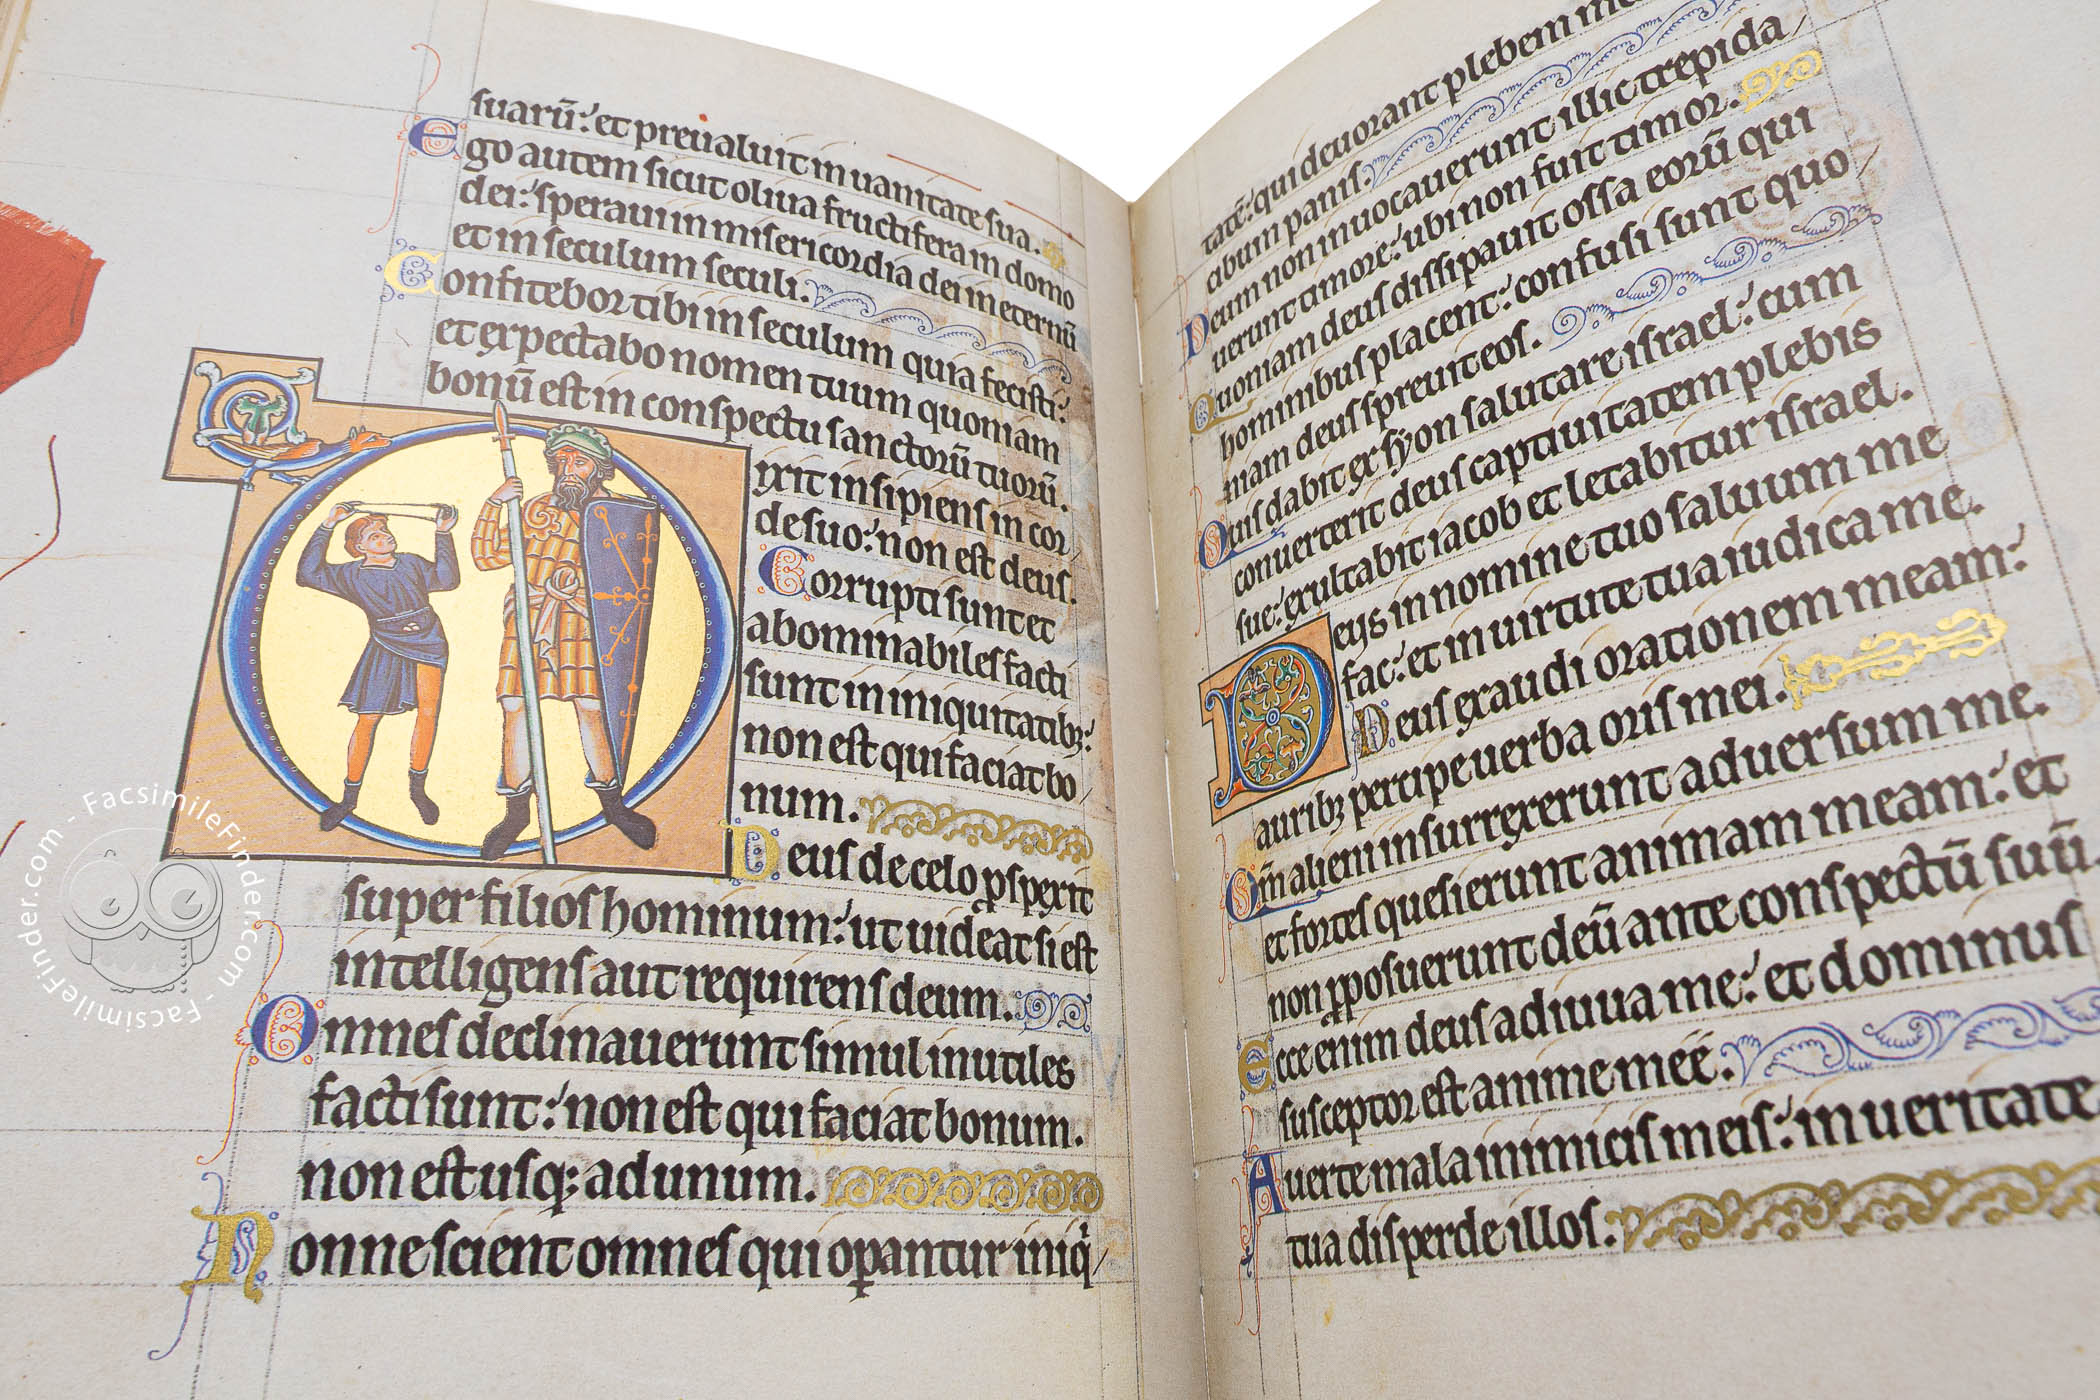 suarū: et preualuit in uanitate sua.
Ego autem sicut oliua fructifera in domo
dei: speraui in misericordia dei in eternū
et in seculum seculi.
Confitebor tibi in seculum quia fecisti:
et expectabo nomen tuum quoniam
bonū est in conspectu sanctorū tuorū.
Dixit insipiens in cor/
de suo: non est deus.
Corrupti sunt et
abominabiles facti
sunt in iniquitatibꝫ:
non est qui faciat bo/
num.
Deus de celo ꝓspexit
super filios hominum: ut uideat si est
intelligens aut requirens deum.
Omnes declinauerunt simul inutiles
facti sunt: non est qui faciat bonum.
non est usqꝫ ad unum.
Nonne scient omnes qui oꝑantur iniq/
qui deuorant plebem
tatē: qui deuorant plebem
cibum panis.
Deum non inuocauerunt illic trepida/
uerunt timore: ubi non fuit timor.
Quoniam deus dissipauit ossa eorū qui
hominibus placent: confusi sunt quo
niam deus spreuit eos.
Quis dabit ex syon salutare israel: cum
conuerterit deus captiuitatem plebis
sue: exultabit iacob et letabitur israel.
Deus in nomine tuo saluum me
fac: et in uirtute tua iudica me.
Deus exaudi orationem meam:
auribꝫ percipe uerba oris mei.
Qm̄ alieni insurrexerunt aduersum me.
et fortes quesierunt animam meam: et
non ꝓposuerunt deū ante conspectū suū.
Ecce enim deus adiuua me: et dominus
susceptor est anime meę.
Auerte mala inimicis meis: in ueritate
tua disperde illos.
FacsimileFinder.com - FacsimileFinder.com - FacsimileFinder.com